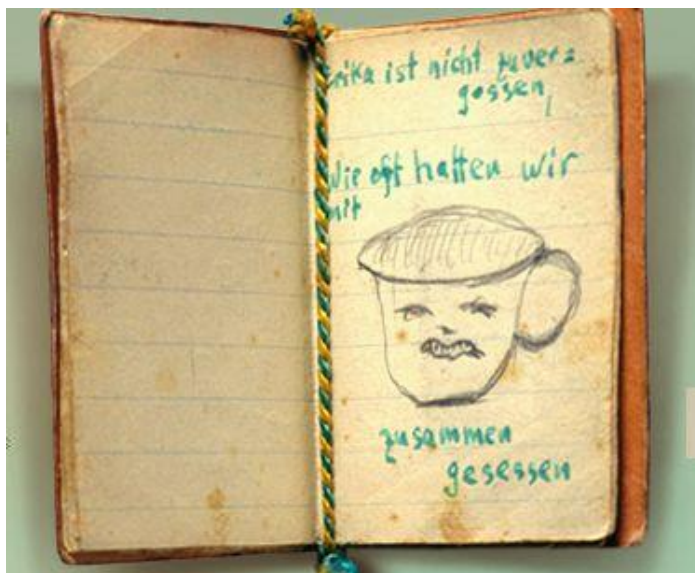 Erika ist nicht zu ver=
gessen,
Wie oft hatten wir
mit
zusammen
gesessen